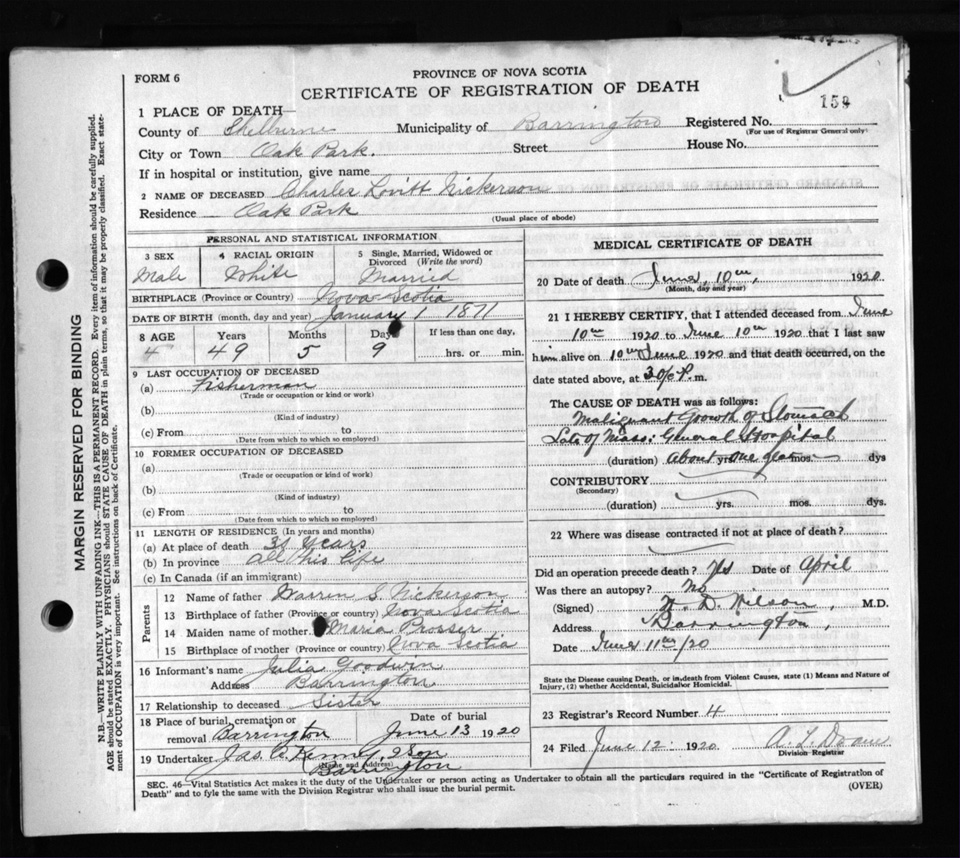 PROVINCE OF NOVA SCOTIA
FORM 6
CERTIFICATE OF REGISTRATION OF DEATH
159
1 PLACE OF DEATH—
County of Shelburne Municipality of Barrington Registered No.
(For use of Registrar General only)
City or Town Oak Park. Street House No.
If in hospital or institution, give name
2 NAME OF DECEASED Charles Lovitt Nickerson
Residence Oak Park
(Usual place of abode)
PERSONAL AND STATISTICAL INFORMATION
3 SEX 4 RACIAL ORIGIN 5 Single, Married, Widowed or Divorced (Write the word)
Male White Married
BIRTHPLACE (Province or Country) Nova Scotia
DATE OF BIRTH (month, day and year) January 1 1871
8 AGE Years Months Days If less than one day,
49 5 9 hrs. or min.
9 LAST OCCUPATION OF DECEASED
(a) Fisherman
(Trade or occupation or kind or work)
(b)
(Kind of industry)
(c) From to
(Date from which to which so employed)
10 FORMER OCCUPATION OF DECEASED
(a)
(Trade or occupation or kind of work)
(b)
(Kind of industry)
(c) From to
(Date from which to which so employed)
11 LENGTH OF RESIDENCE (In years and months)
(a) At place of death years
(b) In province all his life
(c) In Canada (if an immigrant)
Parents
12 Name of father Warren S. Nickerson
13 Birthplace of father (Province or country) Nova Scotia
14 Maiden name of mother Maria Prosser
15 Birthplace of mother (Province or country) Nova Scotia
16 Informant's name Julia Goodwin
Address Barrington
17 Relationship to deceased Sister
18 Place of burial, cremation or removal Barrington Date of burial June 13 1920
19 Undertaker Jas. A. Kenney & Son
(Name and Address) Barrington
MEDICAL CERTIFICATE OF DEATH
20 Date of death June, 10th, 1920
(Month, day and year)
21 I HEREBY CERTIFY, that I attended deceased from June
10th 1920 to June 10th 1920 that I last saw
him alive on 10th June 1920 and that death occurred, on the
date stated above, at P. m.
The CAUSE OF DEATH was as follows:
Malignant Growth of Stomach
Late of Mass: General Hospital
(duration) About yrs. one year mos. dys
CONTRIBUTORY
(Secondary)
(duration) yrs. mos. dys.
22 Where was disease contracted if not at place of death?
Did an operation precede death? Yes Date of April
Was there an autopsy? No
(Signed) H. D. Wilson, M.D.
Address Barrington,
Date June 11th/20
State the Disease causing Death, or in death from Violent Causes, state (1) Means and Nature of
Injury, (2) whether Accidental, Suicidal or Homicidal.
23 Registrar's Record Number 4
24 Filed June 12 1920 A L Doane
Division Registrar
SEC. 46—Vital Statistics Act makes it the duty of the Undertaker or person acting as Undertaker to obtain all the particulars required in the "Certificate of Registration of
Death" and to fyle the same with the Division Registrar who shall issue the burial permit.
(OVER)
MARGIN RESERVED FOR BINDING
N.B.—WRITE PLAINLY WITH UNFADING INK—THIS IS A PERMANENT RECORD. Every item of information should be carefully supplied.
AGE should be stated EXACTLY. PHYSICIANS should STATE CAUSE OF DEATH in plain terms, so that it may be properly classified. Exact state-
ment of OCCUPATION is very important. See instructions on back of Certificate.